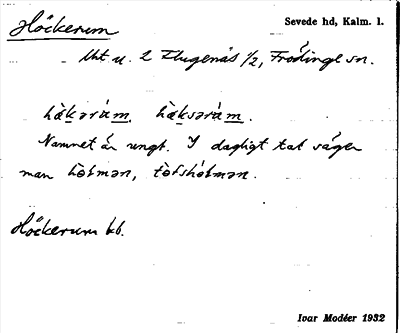 Höckerum
Sevede hd, Kalm. l.
Lht. u. 2 Flugenäs 1/2, Frödinge sn.
hằḵəràm, hằḵsəràm.
Namnet är ungt. I dagligt tal säger
man hòlmən, tòfshòlmən.
Höckerum kb.
Ivar Modéer 1932